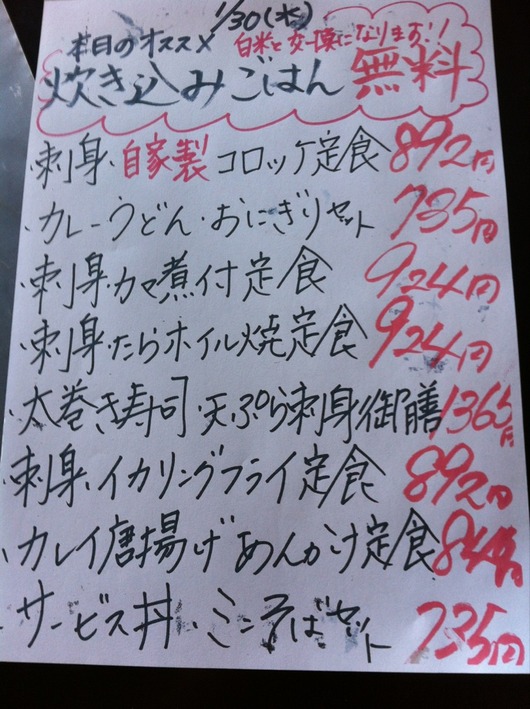 1/30(水)
本日のオススメ 白米と交換になります!!
炊き込みごはん 無料
・刺身・自家製コロッケ定食 892円
・カレーうどん・おにぎりセット 735円
・刺身・カマ煮付定食 924円
・刺身・たらホイル焼定食 924円
・大巻き寿司・天ぷら刺身御膳 1365円
・刺身・イカリングフライ定食 892円
・カレイ唐揚げあんかけ定食
・サービス丼・ミニそばセット 735円